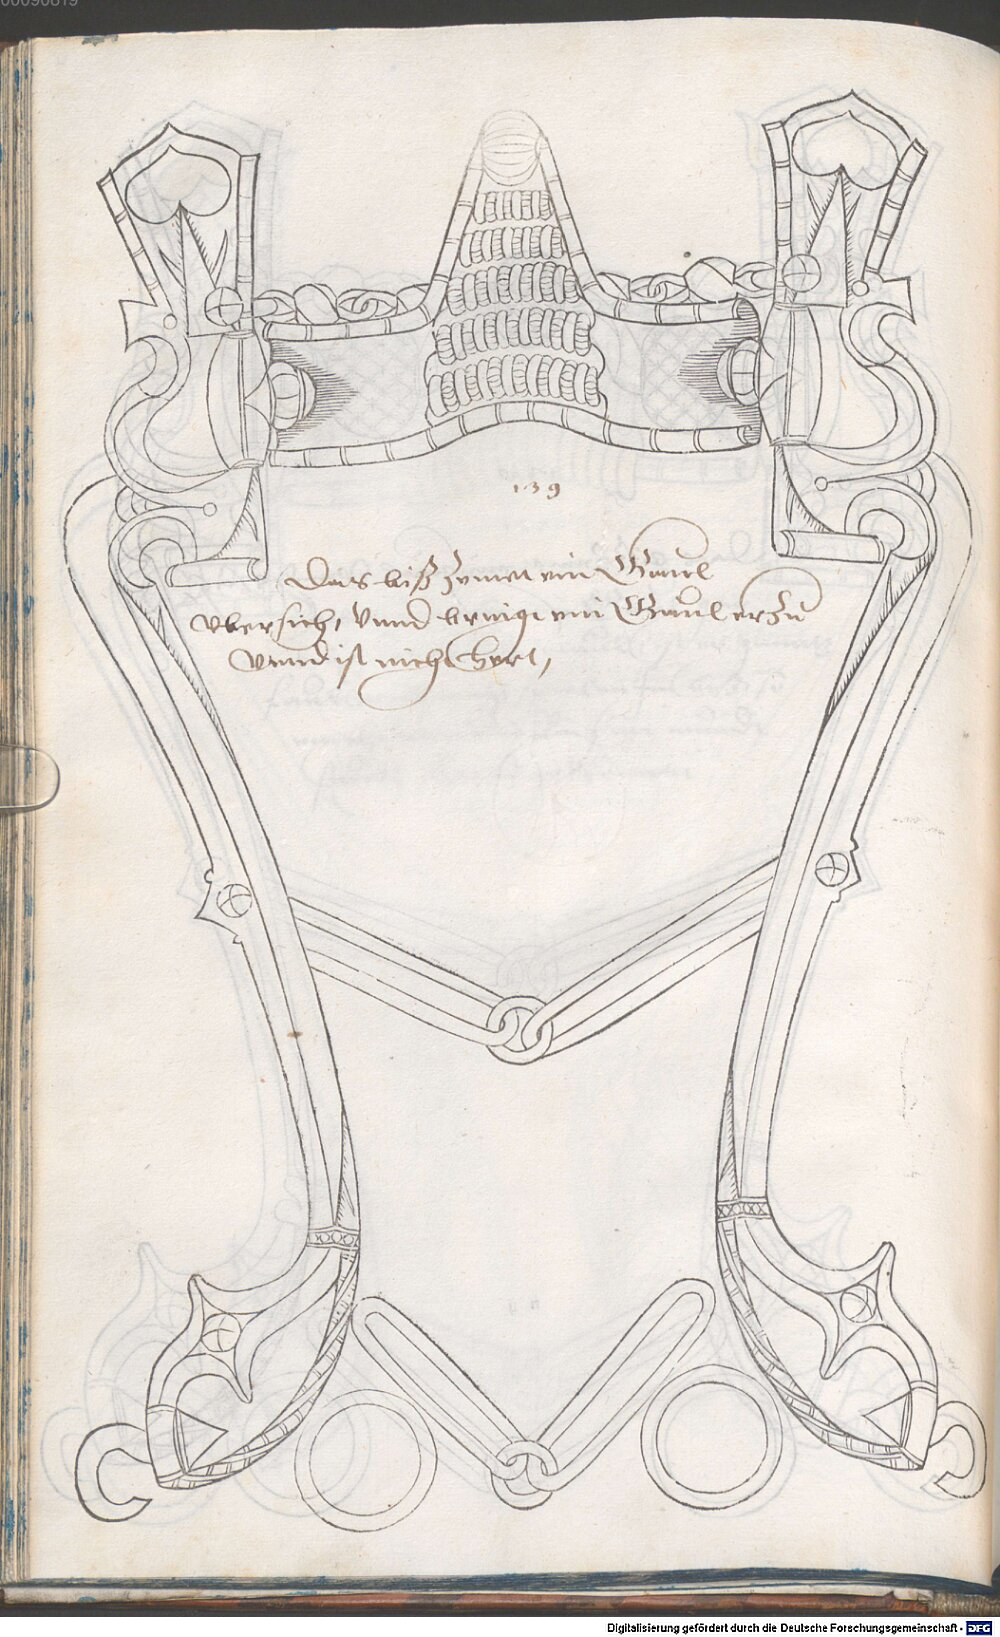 00090819
139
Das biß zemet ein Gaul
vbersich, vnnd bringt ein Gaul erzu
vnnd ist nicht hert,
Digitalisierung gefördert durch die Deutsche Forschungsgemeinschaft - DFG